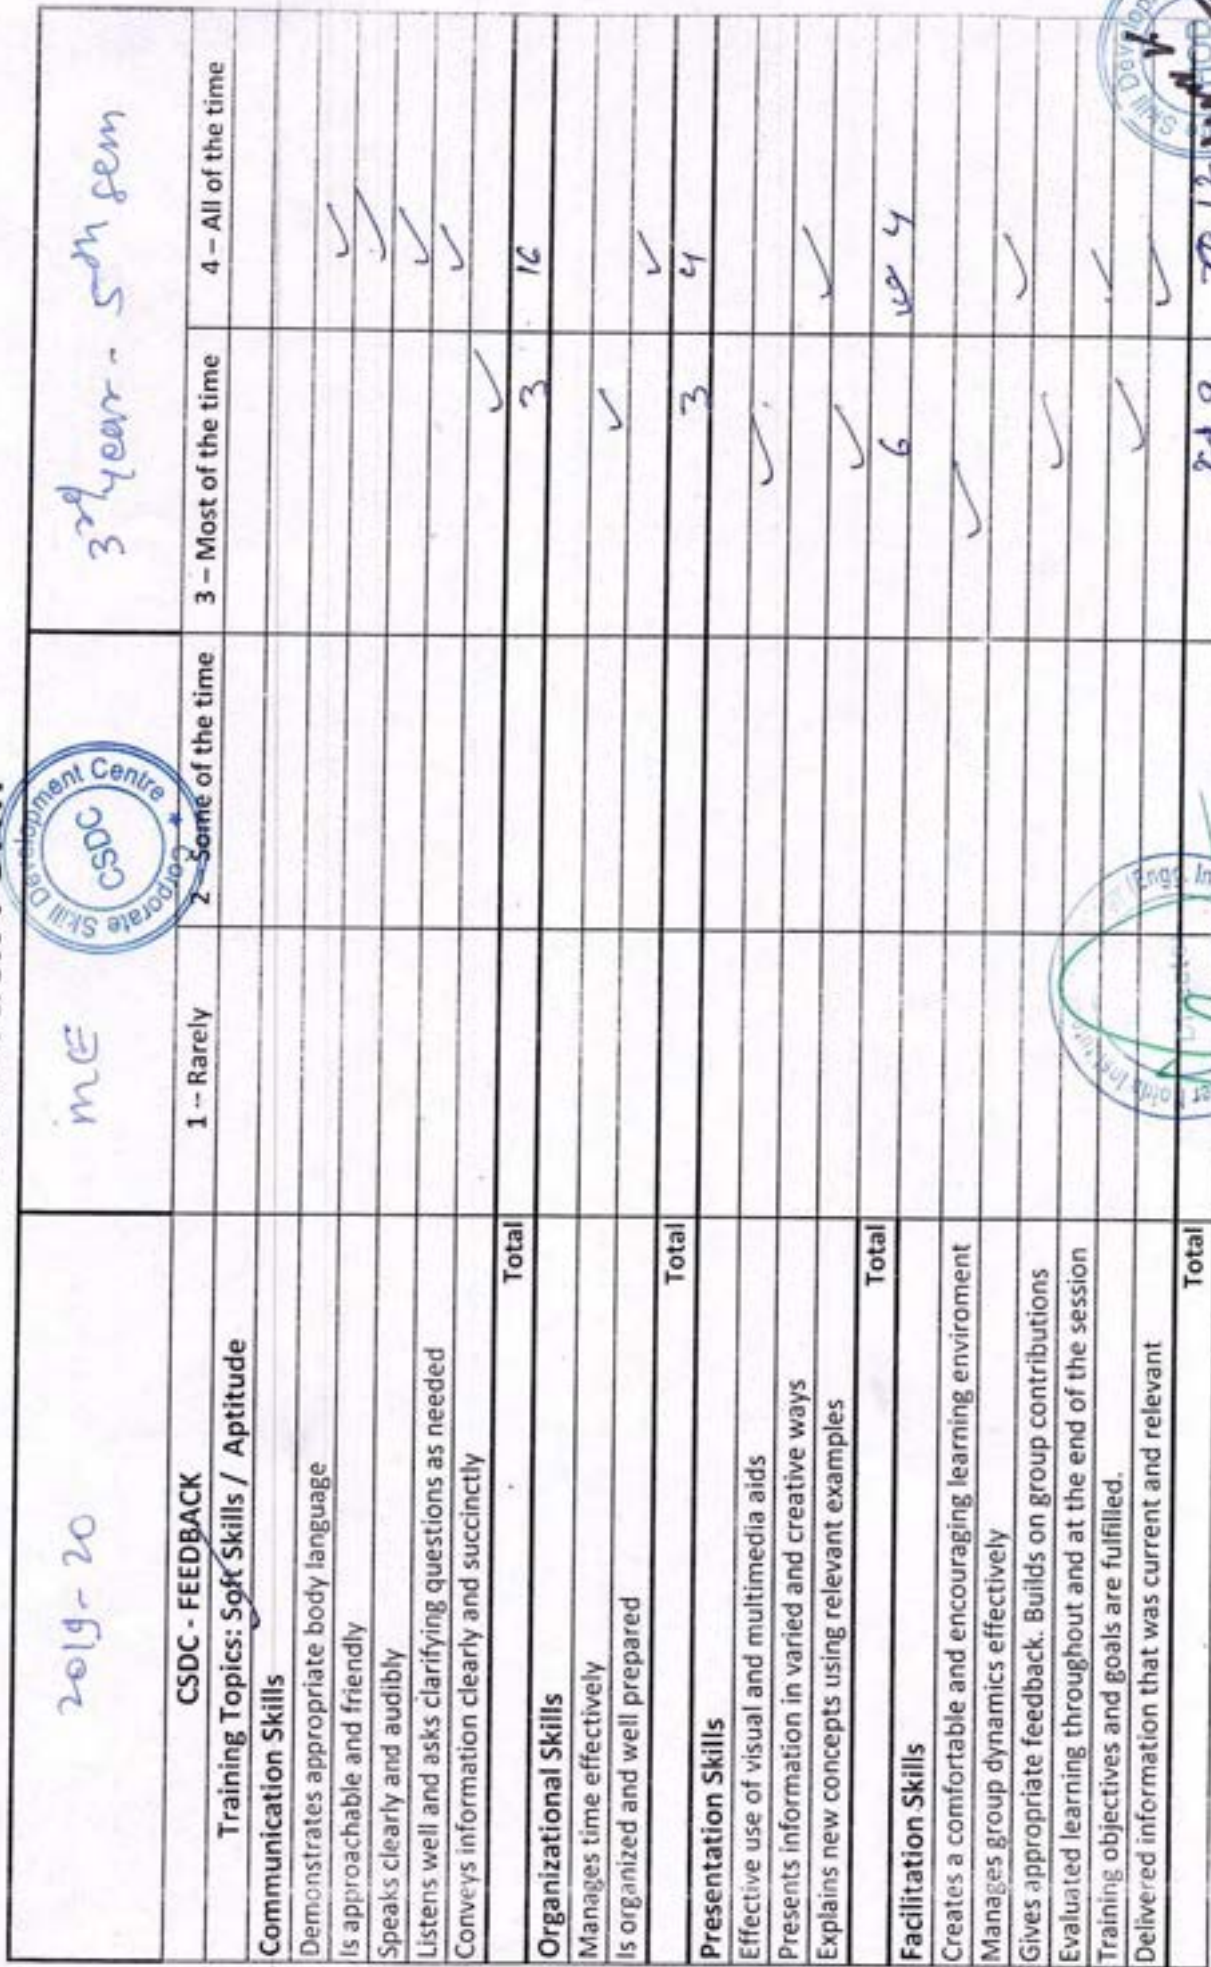 2019-20 ME 3rd year - 5th sem
Corporate Skill Development Centre
CSDC
CSDC - FEEDBACK 1 -- Rarely 2 – Some of the time 3 – Most of the time 4 – All of the time
Training Topics: Soft Skills / Aptitude
Communication Skills
Demonstrates appropriate body language ✓
Is approachable and friendly ✓
Speaks clearly and audibly ✓
Listens well and asks clarifying questions as needed ✓
Conveys information clearly and succinctly ✓
Total 3 16
Organizational Skills
Manages time effectively ✓
Is organized and well prepared ✓
Total 3 4
Presentation Skills
Effective use of visual and multimedia aids ✓
Presents information in varied and creative ways ✓
Explains new concepts using relevant examples ✓
Total 6 4
Facilitation Skills
Creates a comfortable and encouraging learning enviroment ✓
Manages group dynamics effectively ✓
Gives appropriate feedback. Builds on group contributions ✓
Evaluated learning throughout and at the end of the session ✓
Training objectives and goals are fulfilled. ✓
Delivered information that was current and relevant ✓
Total
Skill Develop
HOD
(Engg. In